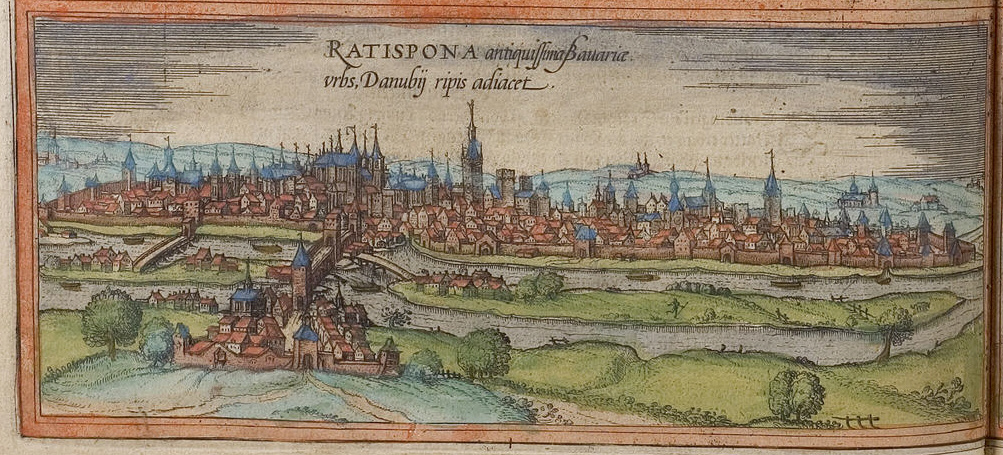 RATISPONA antiquißima Bauariæ
vrbs, Danubij ripis adiacet.